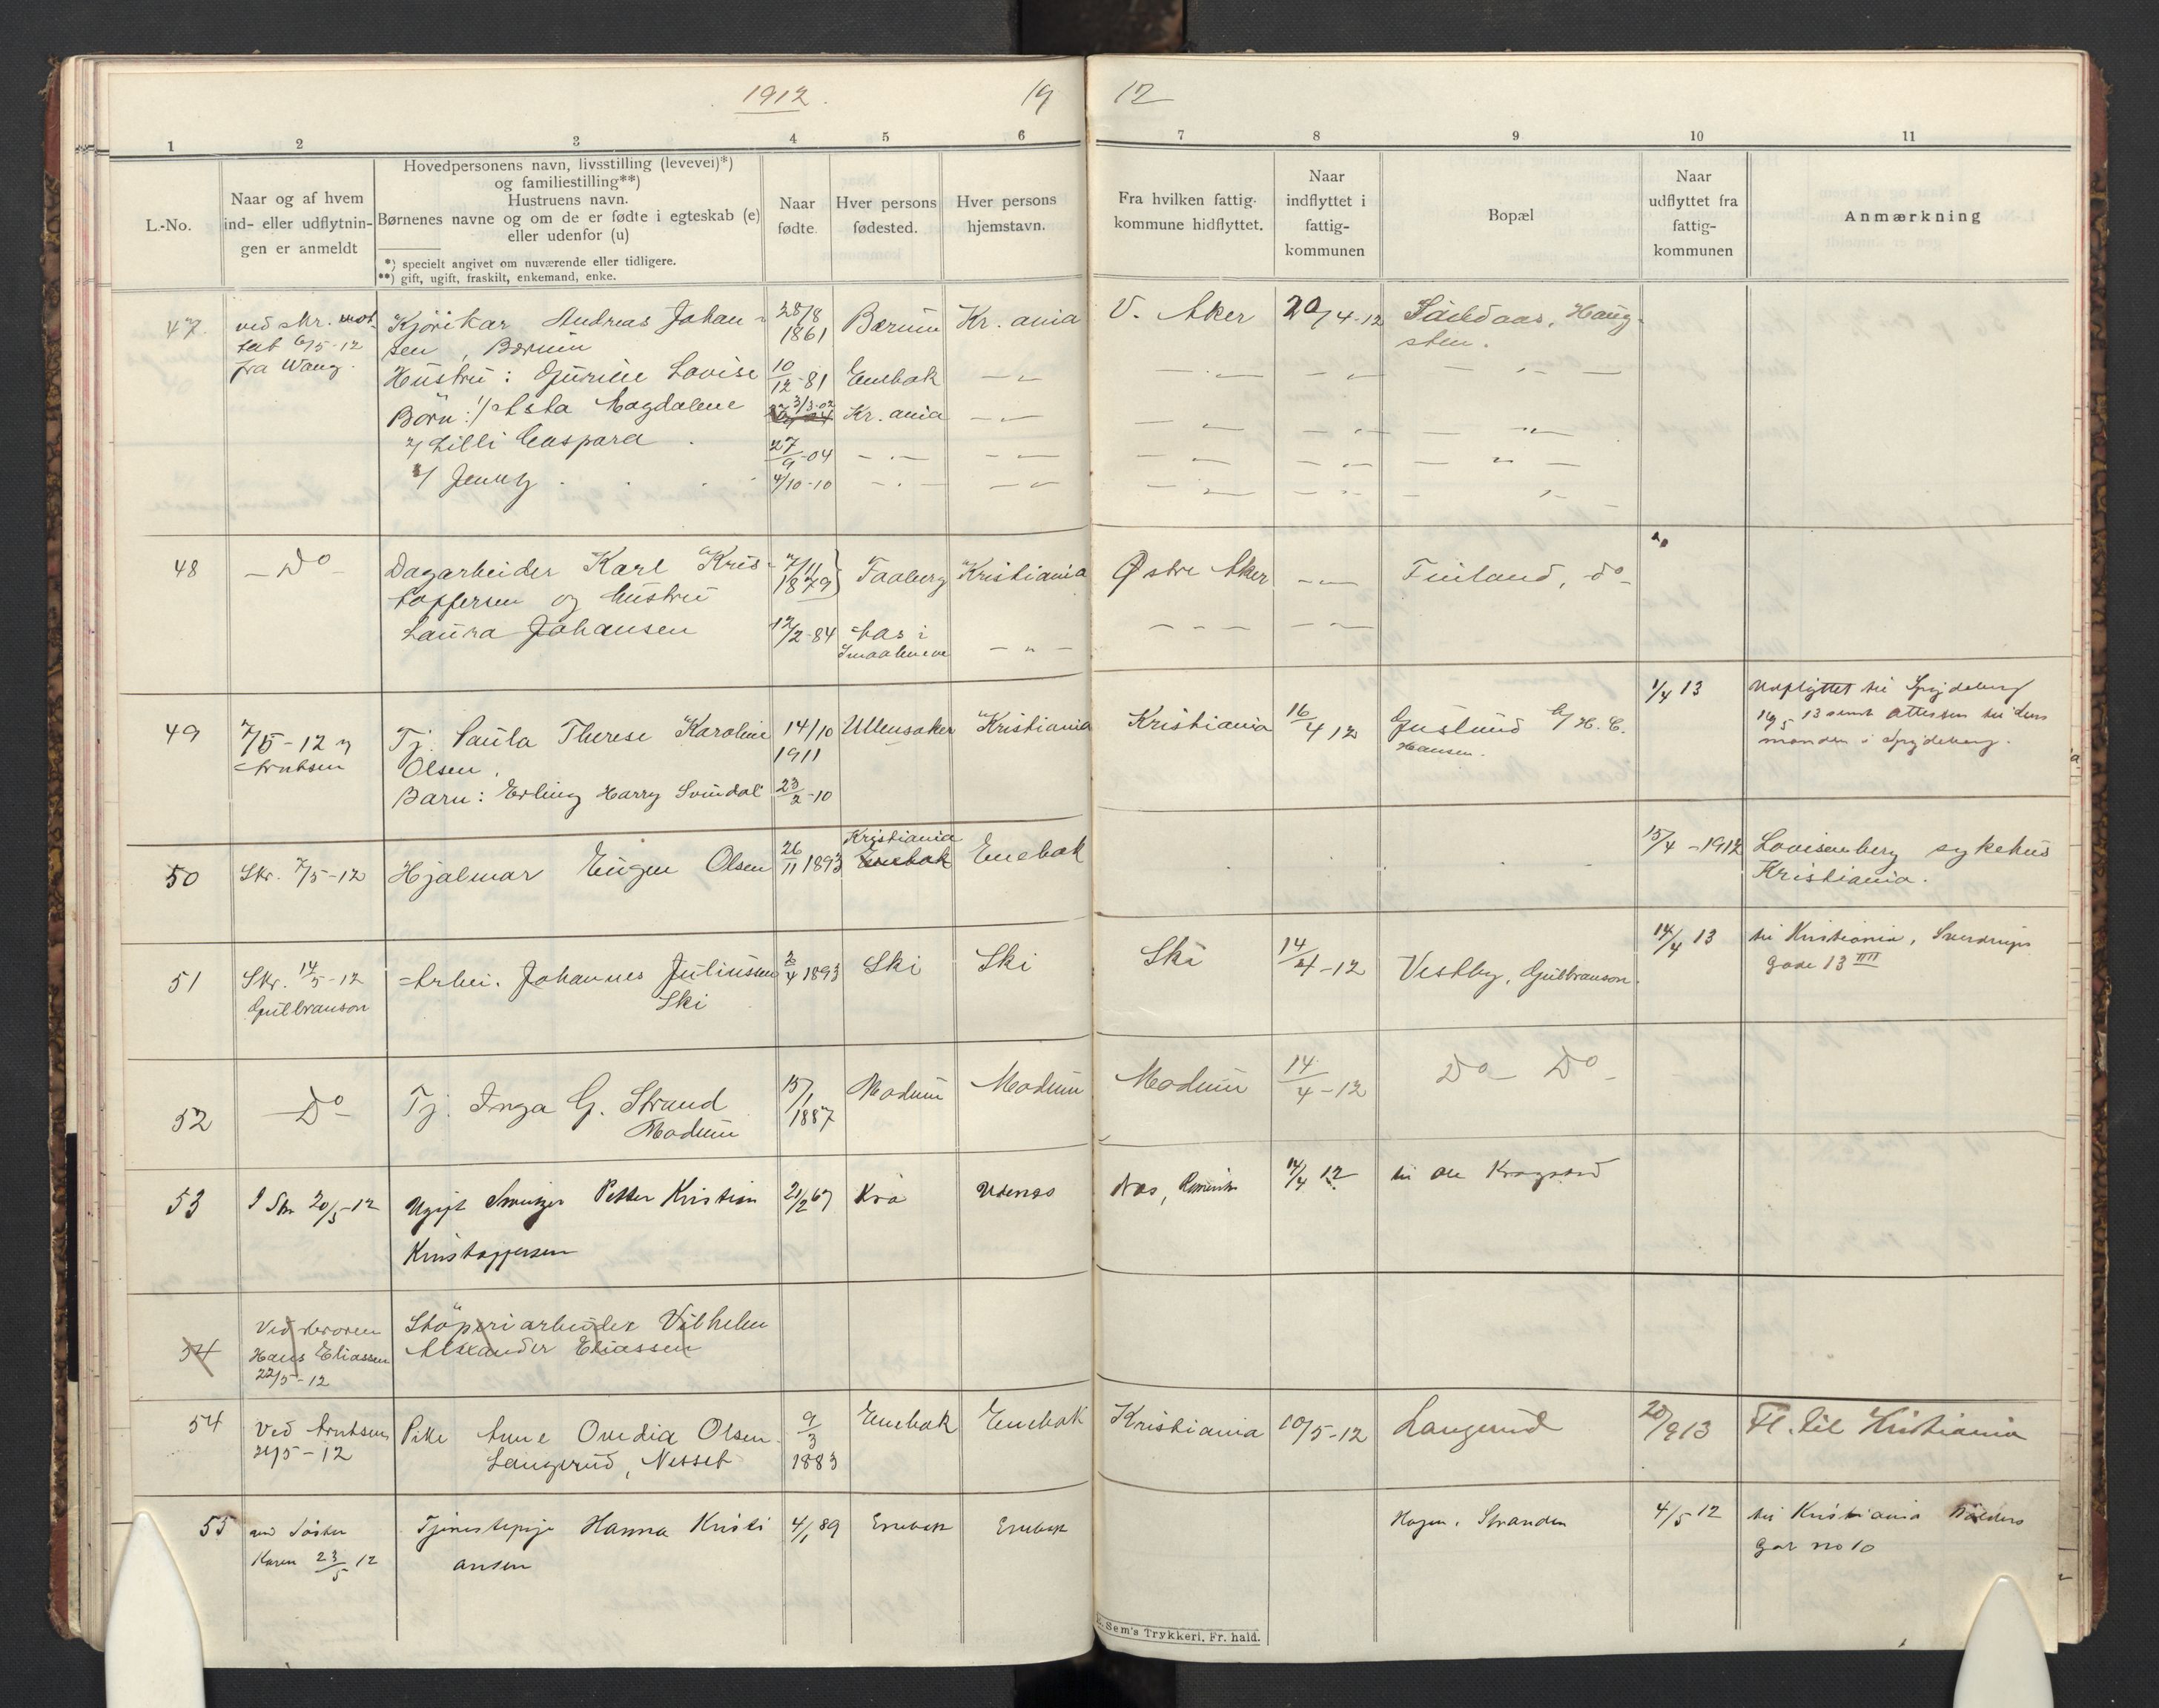 1912.
19
12
1
2
3
4
5
6
7
8
9
10
11
L.-No.
Naar og af hvem
ind- eller udflytnin-
gen er anmeldt
Hovedpersonens navn, livsstilling (levevei)*)
og familiestilling**)
Hustruens navn.
Børnenes navne og om de er fødte i egteskab (e)
eller udenfor (u)
*) specielt angivet om nuværende eller tidligere.
**) gift, ugift, fraskilt, enkemand, enke.
Naar
fødte.
Hver persons
fødested.
Hver persons
hjemstavn.
Fra hvilken fattig-
kommune hidflyttet.
Naar
indflyttet i
fattig-
kommunen
Bopæl
Naar
udflyttet fra
fattig-
kommunen
Anmærkning
47. ved skr. mot- Kjørekar Andreas Johan- 28/8 Bærum Kr. ania V. Aker 20/4-12 Haug-
tat 6/5-12 sen, Bærum 1861 sten.
fra Wang. Hustru: Gurine Lovise 10/12-81 Enebak
Børn: 1/ Asta Magdalene 3/3-02 Kr. ania
2/ Lilli Caspara 27/9-04
3/ Jenny 4/10-10
48 Do Dagarbeider Karl Kris- 7/11 Faaberg Kristiania Østre Aker Finland, do
toffersen og hustru 1879
Laura Johansen 12/2-84 Aas i
Smaalenene
49 7/5-12 Tj. Paula Therese Karoline 14/10 Ullensaker Kristiania Kristiania 16/4 12 Gjuslund a/ H. C. 1/4 13 Udflyttet til Spydeberg
Arntsen Olsen. 1911 Hansen. 16/5 13 sendt attesten til lens
Barn: Erling Harry Svindal 23/2-10 manden i Spydeberg.
50 Skr. 7/5-12 Hjalmar Eugen Olsen 26/11 1893 Kristiania Enebak Enebak 15/4-1912 Lovisenberg sykehus
Kristiania.
51 Skr. 14/5-12 Arbei. Johannes Juliussen 3/4 1893 Ski Ski Ski 14/4-12 Vestby, Gulbranson. 14/4 13 til Kristiania, Sverdrups
Gulbranson Ski gade 13 III
52 Do Tj. Inga G. Strand 15/1 Modum Modum Modum 14/4-12 Do Do
Modum 1887
53 I Skr 20/5-12 Ugift Petter Kristian 21/2 67 Kra Udenes Nes, Romerike 14/4 12 til Ole Kragsrud
Kristoffersen
54 Ved Støperiarbeider Vilhelm
Hans Eliassen Alexander Eliassen
22/5-12
54 Ved Arntsen Pike Anne Ovedia Olsen 9/3 Enebak Enebak Kristiania 10/5-12 Langerud 20/9 13 Fl. til Kristiania
21/5-12 Langerud, Nesset 1883
55 ved Søster Tjenestepige Hanna Kristi 4/1 89 Enebak Enebak Hagen, Stranden 4/5 12 til Kristiania
Karen 23/5 12 ansen no 10
Sem's Trykkeri, Fr. hald.